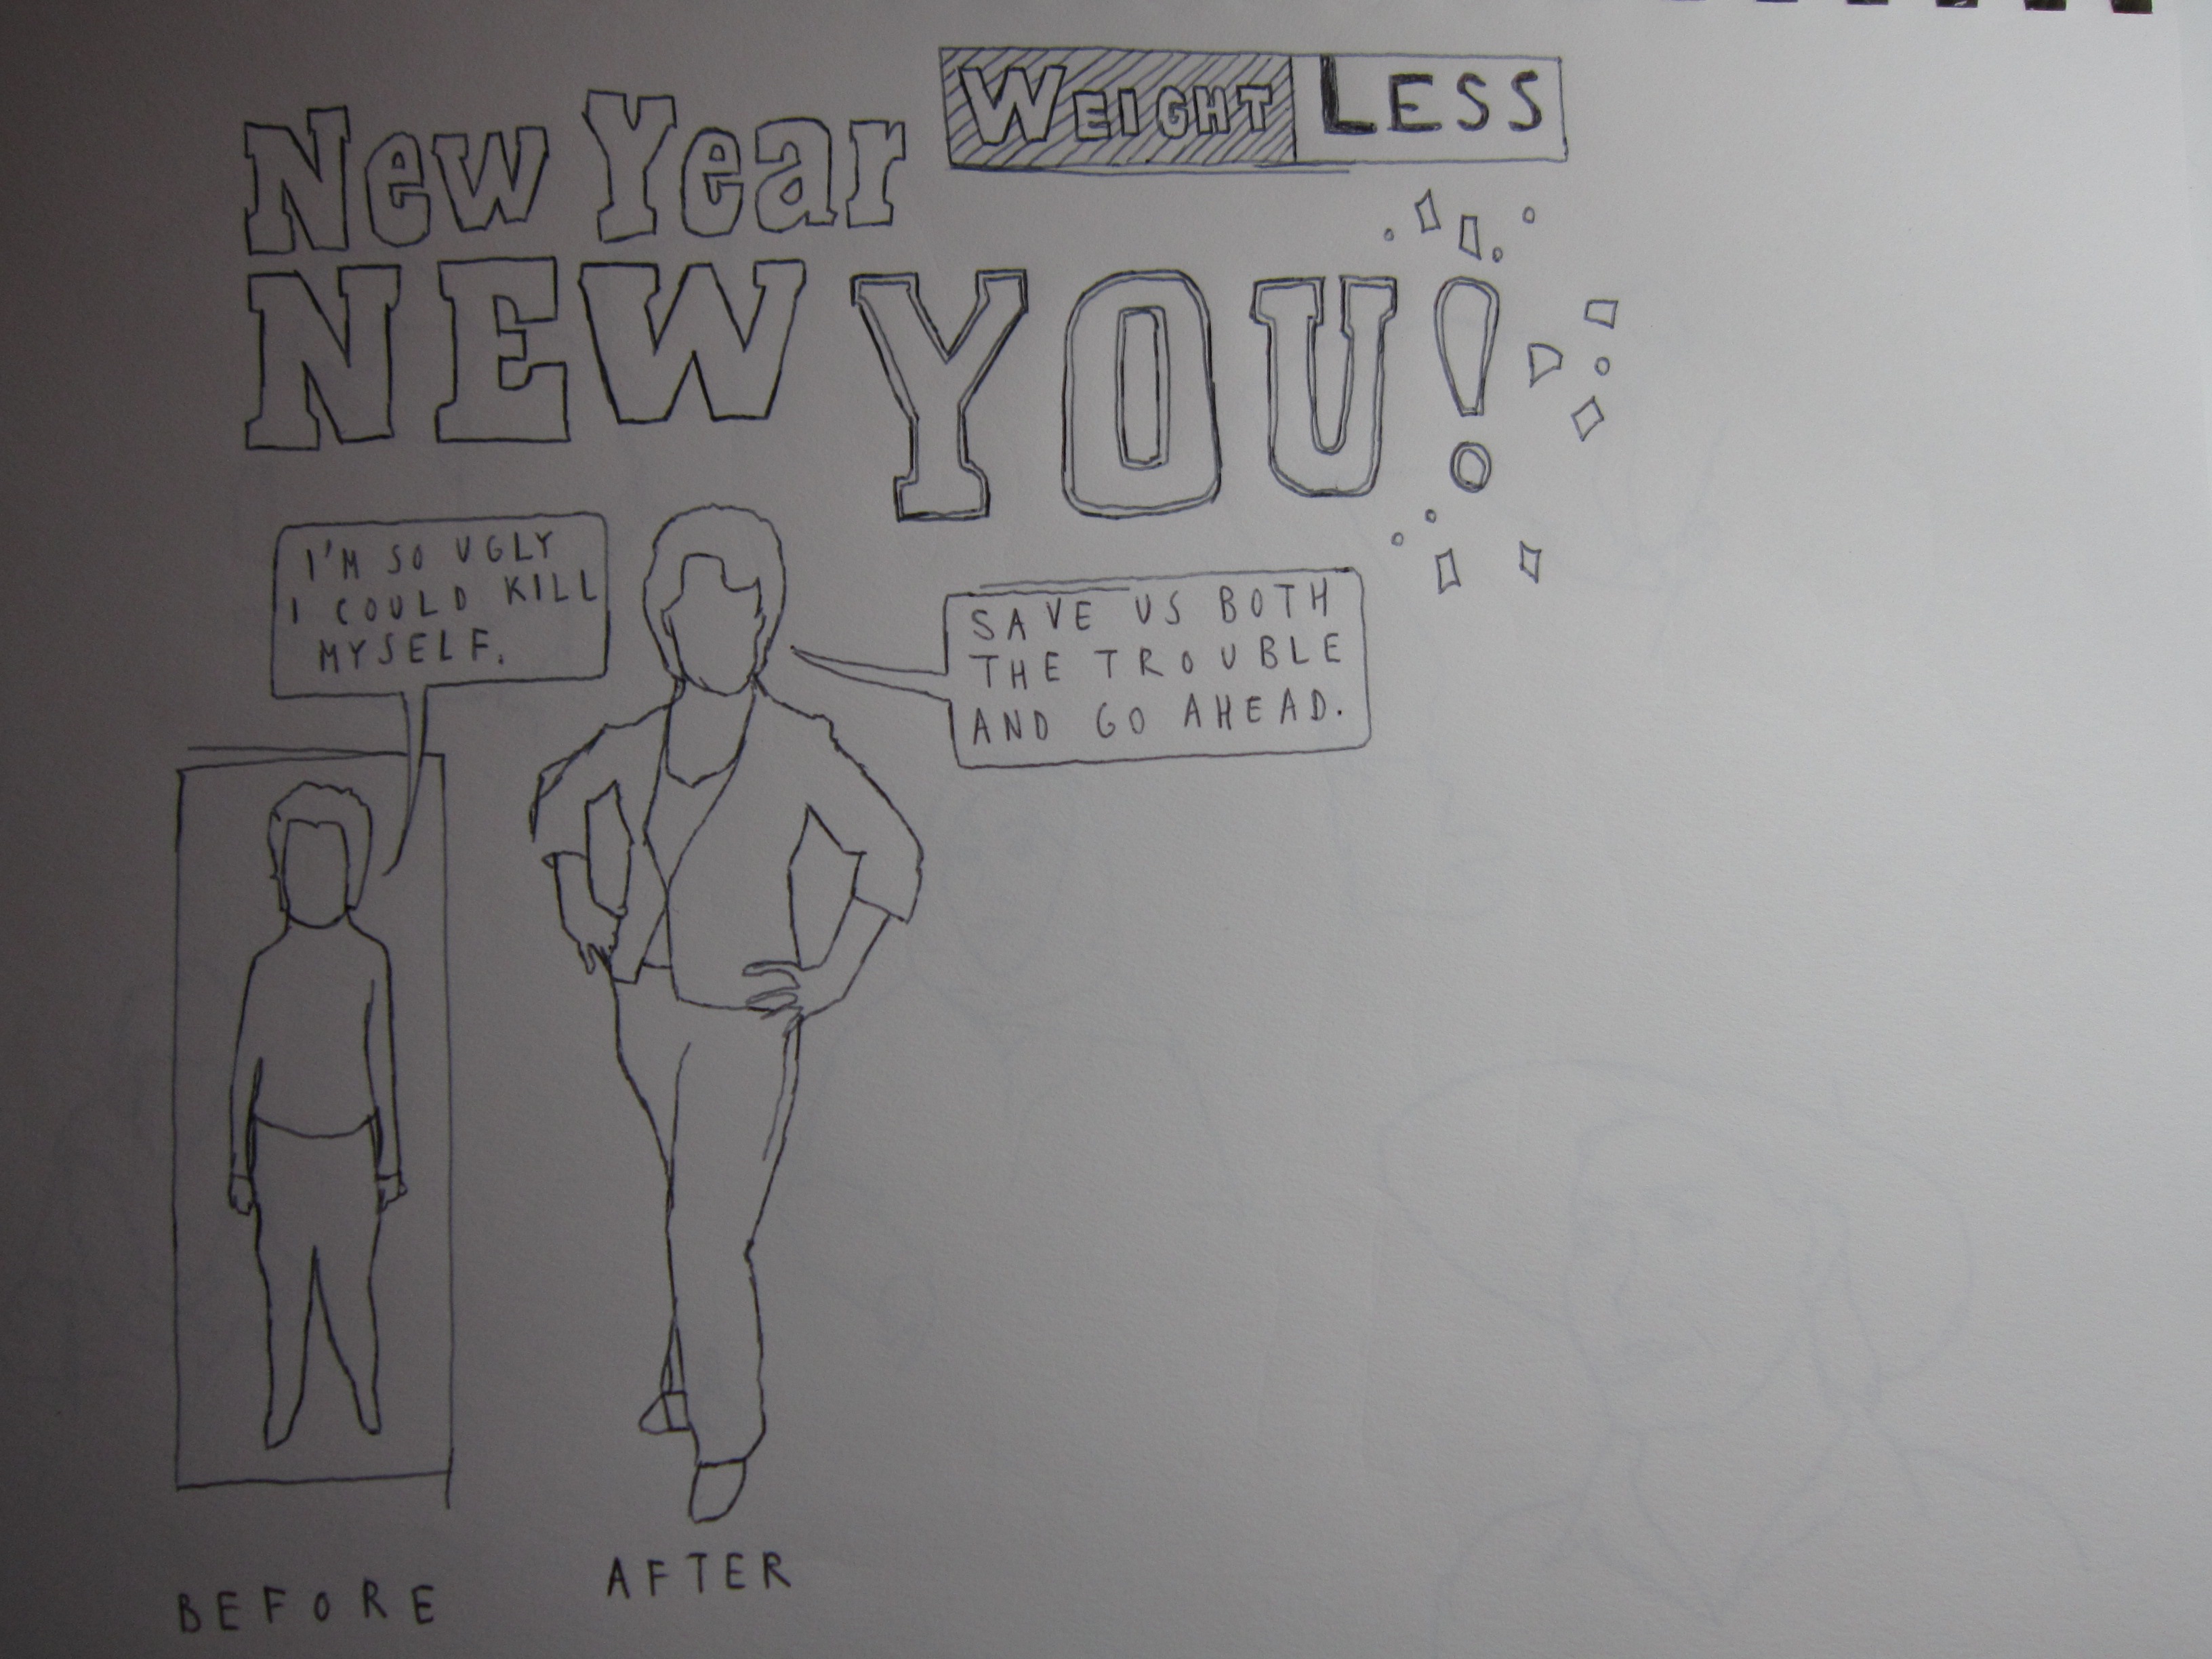 WEIGHT LESS
New Year
NEW YOU!
I'M SO UGLY
I COULD KILL
MYSELF.
SAVE US BOTH
THE TROUBLE
AND GO AHEAD.
BEFORE
AFTER